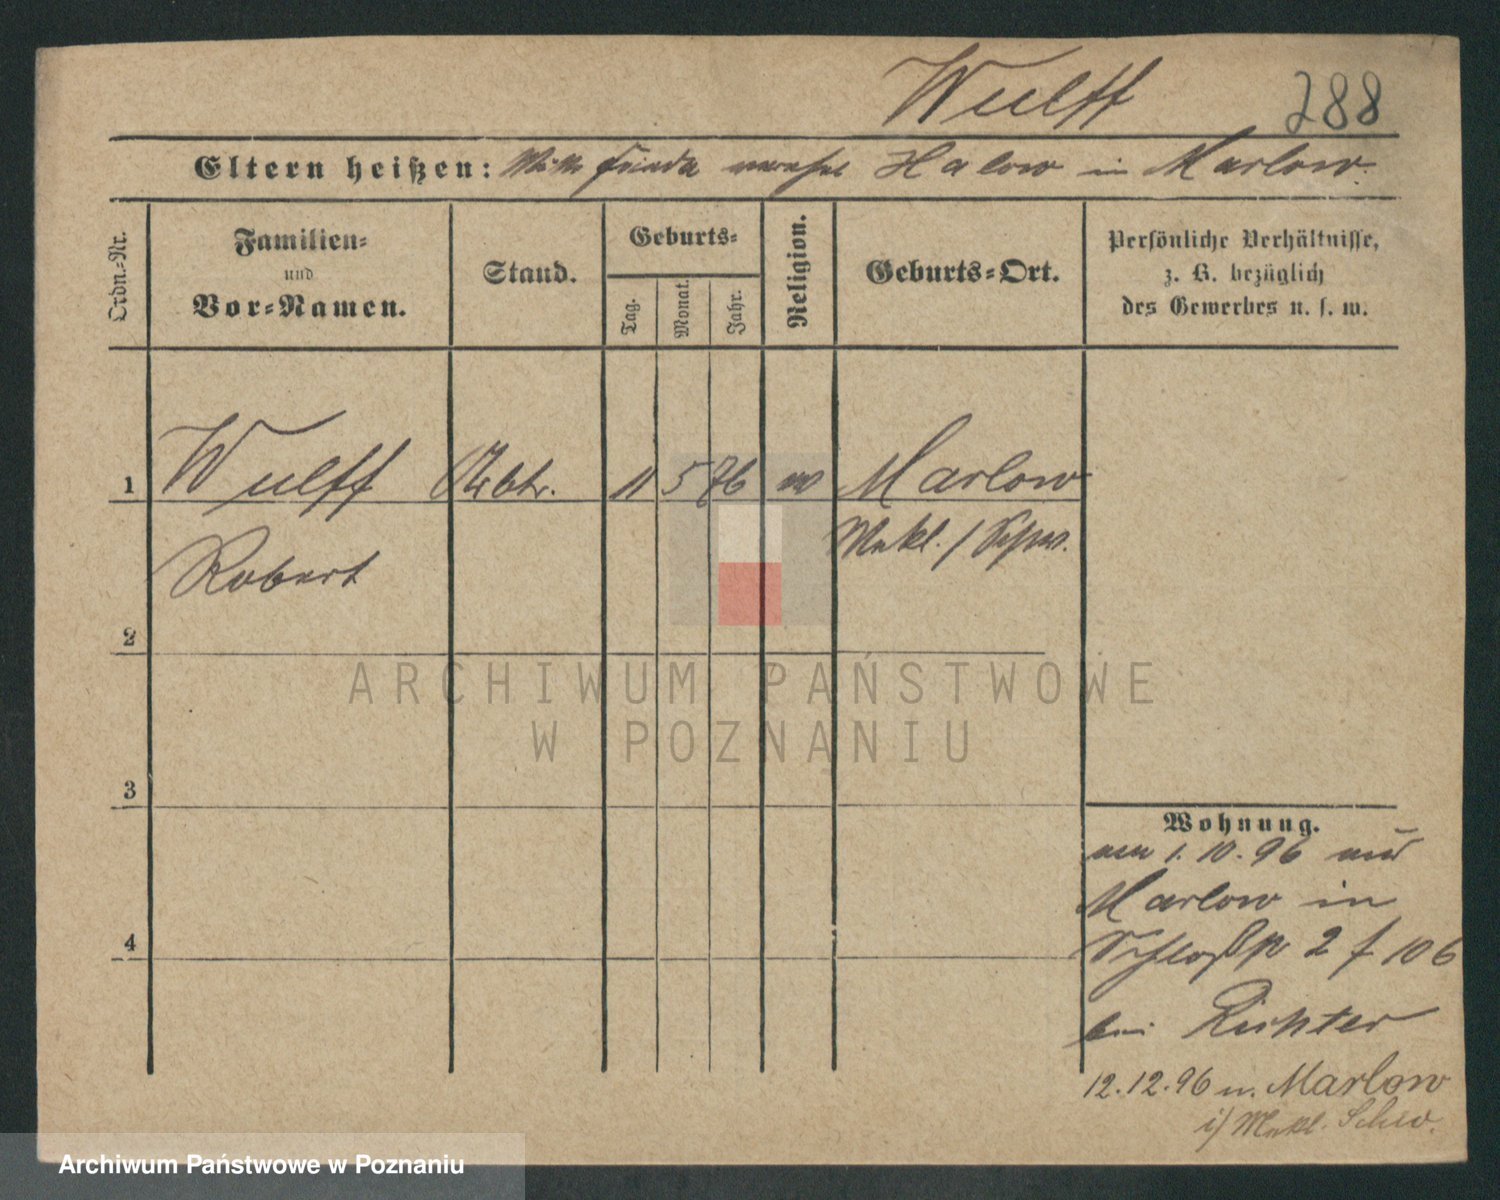 Wulff 288
Eltern heißen: Frieda verehel Halow in Marlow.
Ordn.-Nr.
Familien-
und
Vor-Namen.
Stand.
Geburts-
Tag.
Monat.
Jahr.
Religion.
Geburts-Ort.
Persönliche Verhältnisse,
z. B. bezüglich
des Gewerbes u. s. w.
1 Wulff Arbtr. 11 5 76 Marlow
Robert Mekl./Schw.
2
3
4
Wohnung.
1.10.96 aus
Marlow in
Schloßstr 2 f 106
bei Richter
12.12.96 n. Marlow
i/ Mekl. Schw.
ARCHIWUM PAŃSTWOWE
W POZNANIU
Archiwum Państwowe w Poznaniu